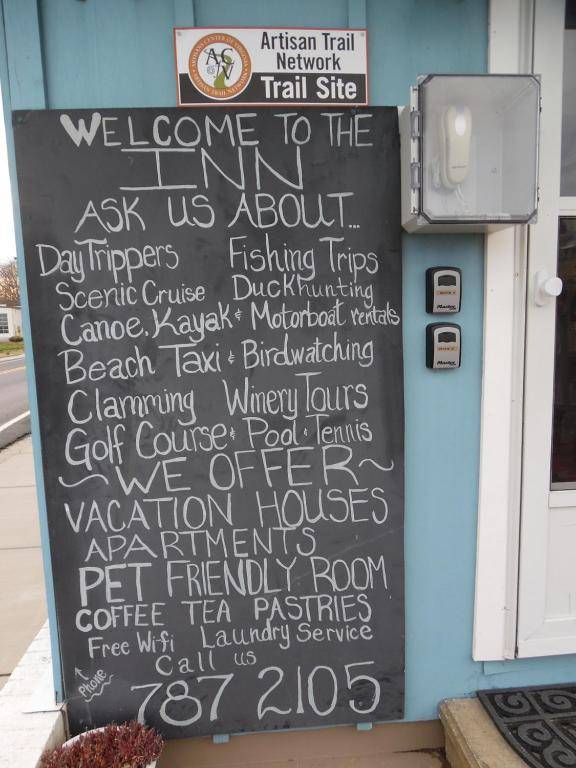 Artisan Trail
Network
Trail Site
ARTISANS CENTER OF VIRGINIA
ARTISAN TRAIL NETWORK
ACV
WELCOME TO THE
INN
ASK US ABOUT...
Day Trippers Fishing Trips
Scenic Cruise Duck hunting
Canoe, Kayak & Motorboat rentals
Beach Taxi & Birdwatching
Clamming Winery Tours
Golf Course & Pool & Tennis
~WE OFFER~
VACATION HOUSES
APARTMENTS
PET FRIENDLY ROOM
COFFEE TEA PASTRIES
Free Wifi Laundry Service
Call us
Phone
787 2105
Master
Master